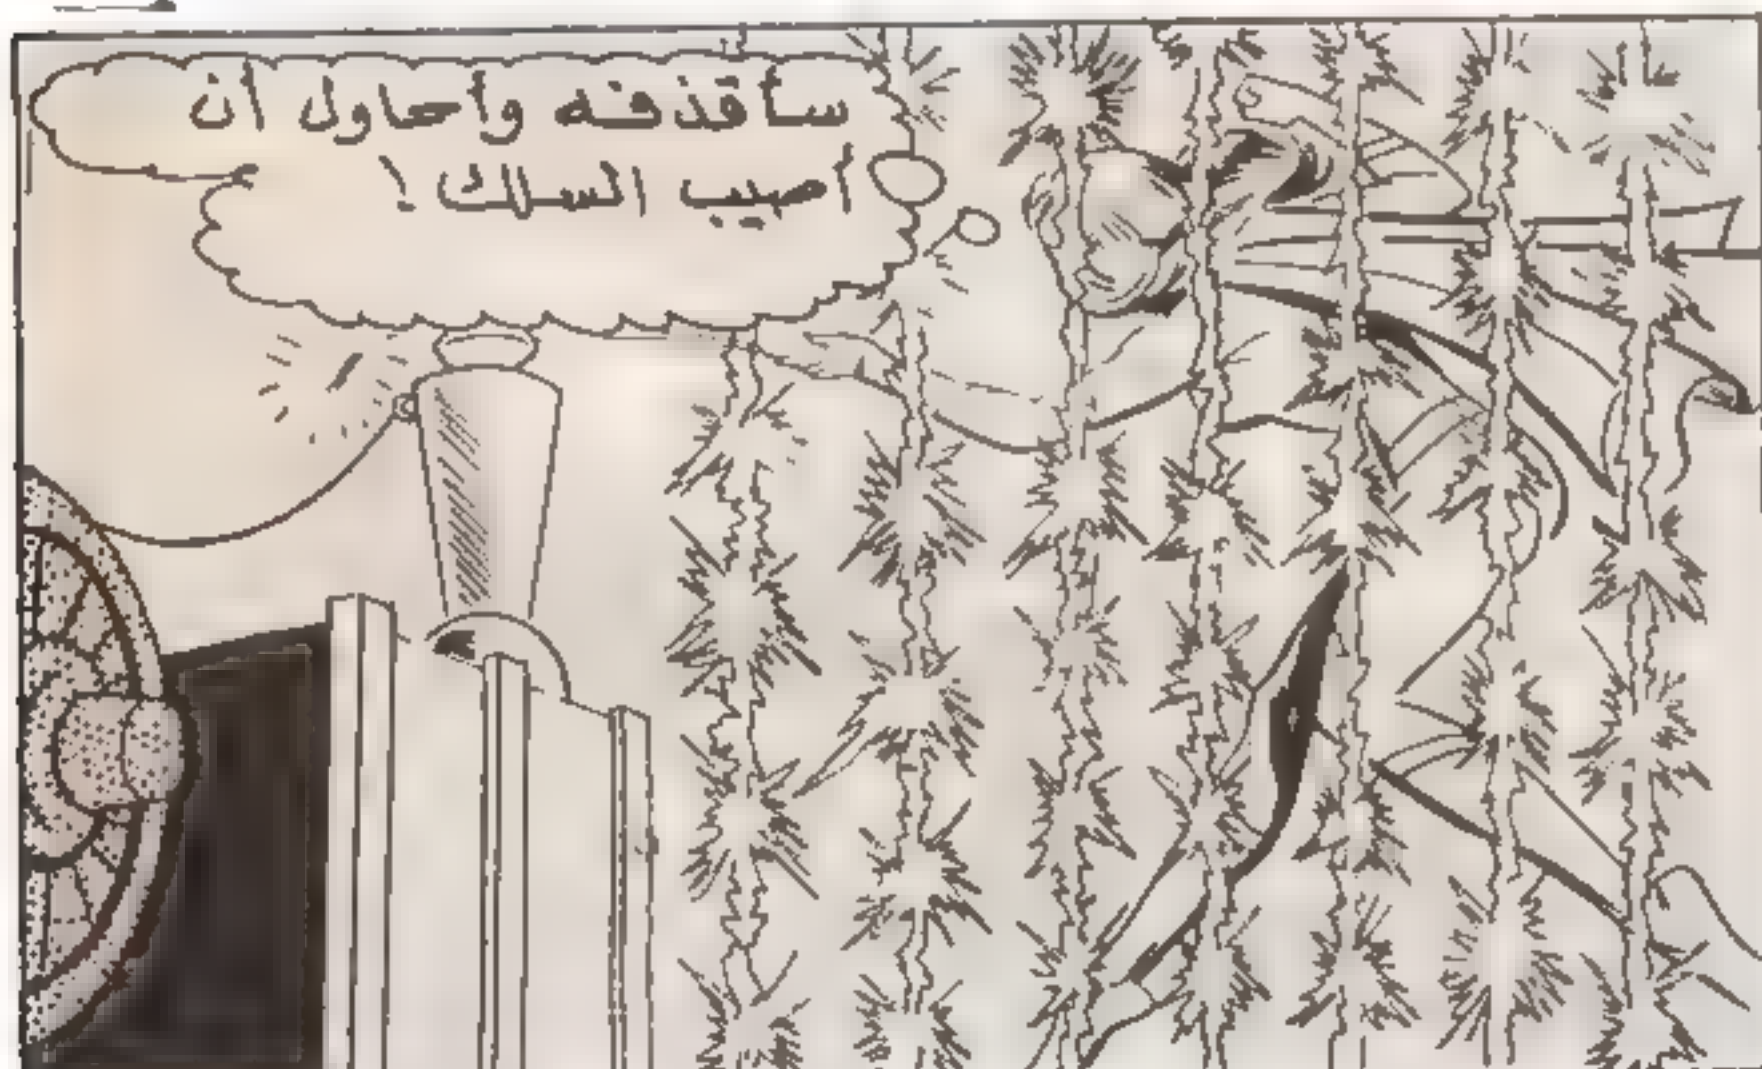 سأقذفه وأحاول أن
أصيب السلك!